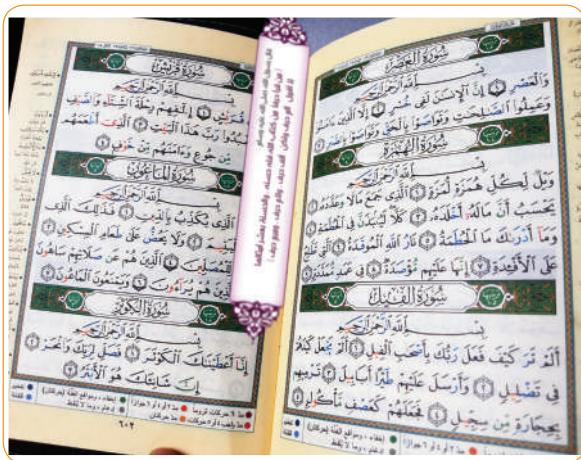 سُورَةُ العَصْرِ
بِسْمِ اللَّهِ الرَّحْمَٰنِ الرَّحِيمِ
وَالْعَصْرِ ١ إِنَّ الْإِنسَانَ لَفِي خُسْرٍ ٢ إِلَّا الَّذِينَ ءَامَنُوا
وَعَمِلُوا الصَّالِحَاتِ وَتَوَاصَوْا بِالْحَقِّ وَتَوَاصَوْا بِالصَّبْرِ ٣
سُورَةُ الهُمَزَةِ
بِسْمِ اللَّهِ الرَّحْمَٰنِ الرَّحِيمِ
وَيْلٌ لِّكُلِّ هُمَزَةٍ لُّمَزَةٍ ١ الَّذِي جَمَعَ مَالًا وَعَدَّدَهُ ٢
يَحْسَبُ أَنَّ مَالَهُ أَخْلَدَهُ ٣ كَلَّا لَيُنبَذَنَّ فِي الْحُطَمَةِ ٤
وَمَا أَدْرَىٰكَ مَا الْحُطَمَةُ ٥ نَارُ اللَّهِ الْمُوقَدَةُ ٦ الَّتِي تَطَّلِعُ
عَلَى الْأَفْئِدَةِ ٧ إِنَّهَا عَلَيْهِم مُّؤْصَدَةٌ ٨ فِي عَمَدٍ مُّمَدَّدَةٍ ٩
سُورَةُ الفِيلِ
بِسْمِ اللَّهِ الرَّحْمَٰنِ الرَّحِيمِ
أَلَمْ تَرَ كَيْفَ فَعَلَ رَبُّكَ بِأَصْحَابِ الْفِيلِ ١ أَلَمْ يَجْعَلْ كَيْدَهُمْ
فِي تَضْلِيلٍ ٢ وَأَرْسَلَ عَلَيْهِمْ طَيْرًا أَبَابِيلَ ٣ تَرْمِيهِم
بِحِجَارَةٍ مِّن سِجِّيلٍ ٤ فَجَعَلَهُمْ كَعَصْفٍ مَّأْكُولٍ ٥
سُورَةُ قُرَيْشٍ
بِسْمِ اللَّهِ الرَّحْمَٰنِ الرَّحِيمِ
قُرَيْشٍ ١ إِۦلَٰفِهِمْ رِحْلَةَ الشِّتَاءِ وَالصَّيْفِ
رَبَّ هَٰذَا الْبَيْتِ ٣ الَّذِي أَطْعَمَهُم
مِّن جُوعٍ وَءَامَنَهُم مِّنْ خَوْفٍ ٤
سُورَةُ المَاعُونِ
بِسْمِ اللَّهِ الرَّحْمَٰنِ الرَّحِيمِ
الَّذِي يُكَذِّبُ بِالدِّينِ ١ فَذَٰلِكَ الَّذِي
الْيَتِيمَ ٢ وَلَا يَحُضُّ عَلَىٰ طَعَامِ الْمِسْكِينِ ٣
لِّلْمُصَلِّينَ ٤ الَّذِينَ هُمْ عَن صَلَاتِهِمْ سَاهُونَ
الَّذِينَ هُمْ يُرَاءُونَ ٦ وَيَمْنَعُونَ الْمَاعُونَ ٧
سُورَةُ الكَوْثَرِ
بِسْمِ اللَّهِ الرَّحْمَٰنِ الرَّحِيمِ
إِنَّا أَعْطَيْنَاكَ الْكَوْثَرَ ١ فَصَلِّ لِرَبِّكَ وَانْحَرْ ٢
إِنَّ شَانِئَكَ هُوَ الْأَبْتَرُ ٣
٦٠٢
قال رسول الله صلى الله عليه وسلم
(من قرأ حرفاً من كتاب الله فله حسنة، والحسنة بعشر أمثالها
لا أقول: ألم حرف ولكن: ألف حرف، ولام حرف، وميم حرف)